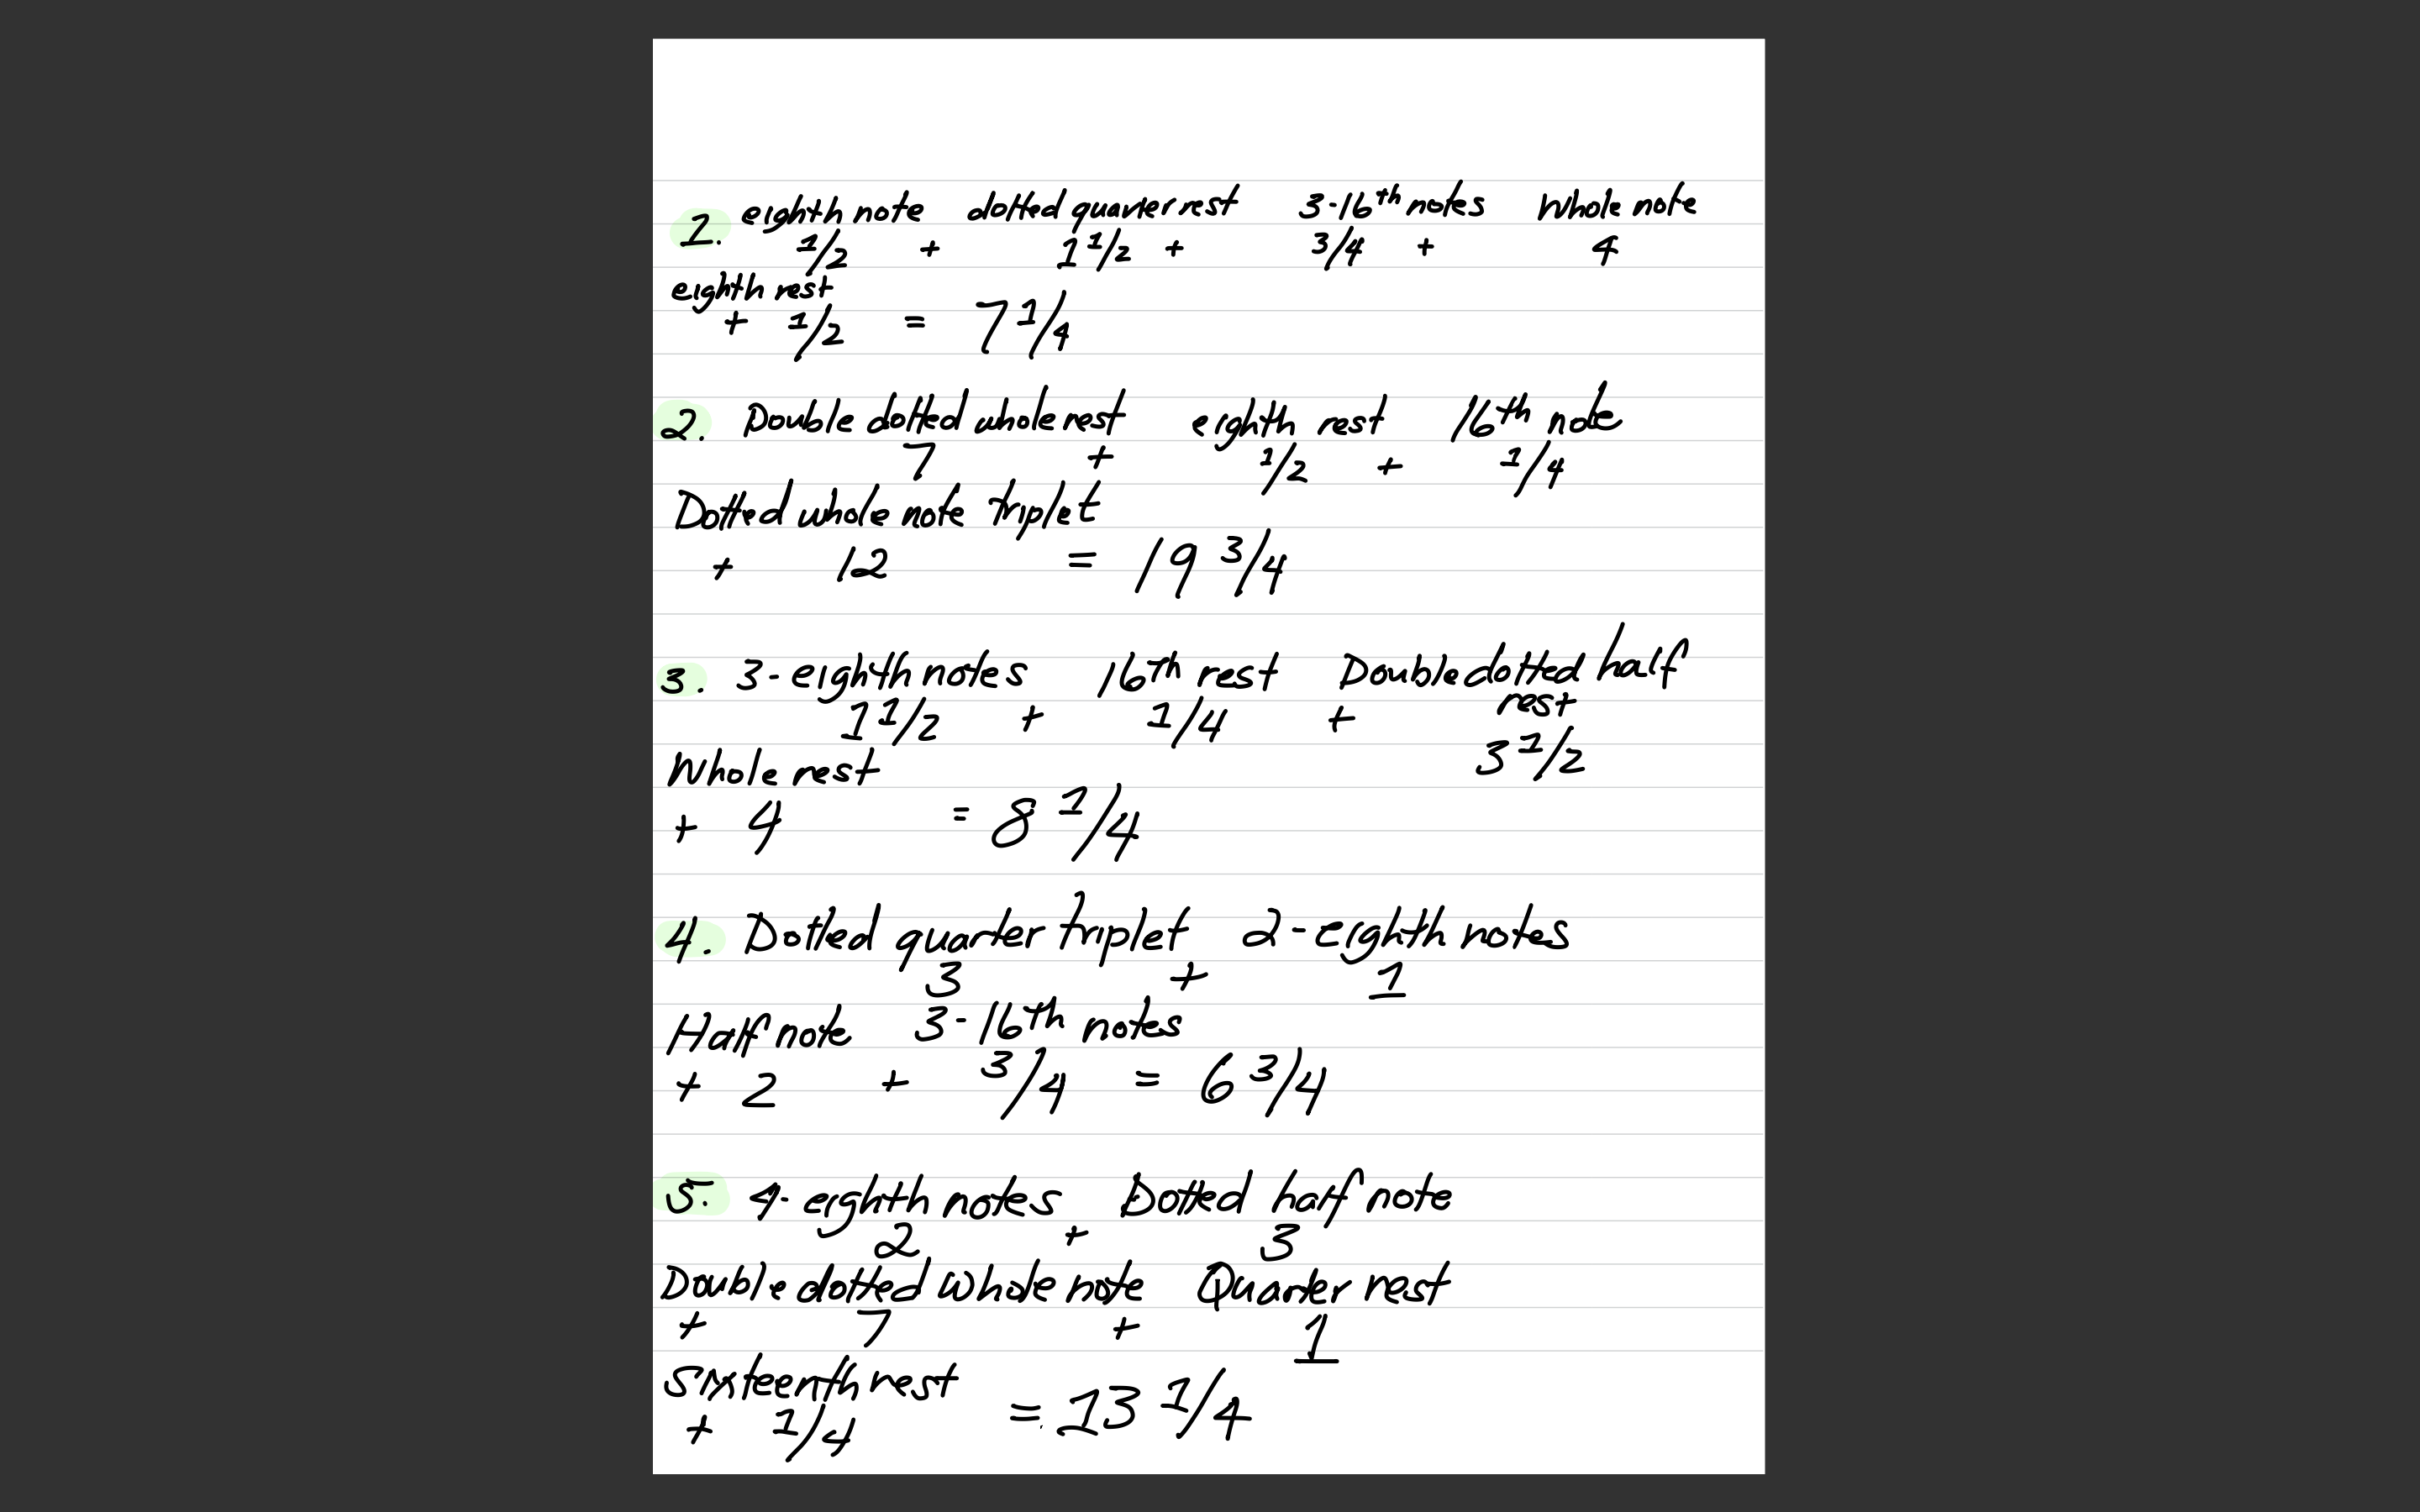 1. eighth note dotted quarter rest 3-16th notes Whole note
1/2 + 1 1/2 + 3/4 + 4
eighth rest
+ 1/2 = 7 1/4
2. Double dotted whole rest eighth rest 16th note
7 + 1/2 + 1/4
Dotted whole note triplet
+ 12 = 19 3/4
3. 3-eighth notes 16th rest Double dotted half
rest
1 1/2 + 1/4 + 3 1/2
Whole rest
+ 4 = 8 1/4
4. Dotted quarter triplet 2-eighth notes
3 + 1
Half note 3-16th notes
+ 2 + 3/4 = 6 3/4
5. 4-eighth notes Dotted half note
2 + 3
Double dotted Whole note Quarter rest
+ 7 + 1
Sixteenth rest
+ 1/4 = 13 1/4